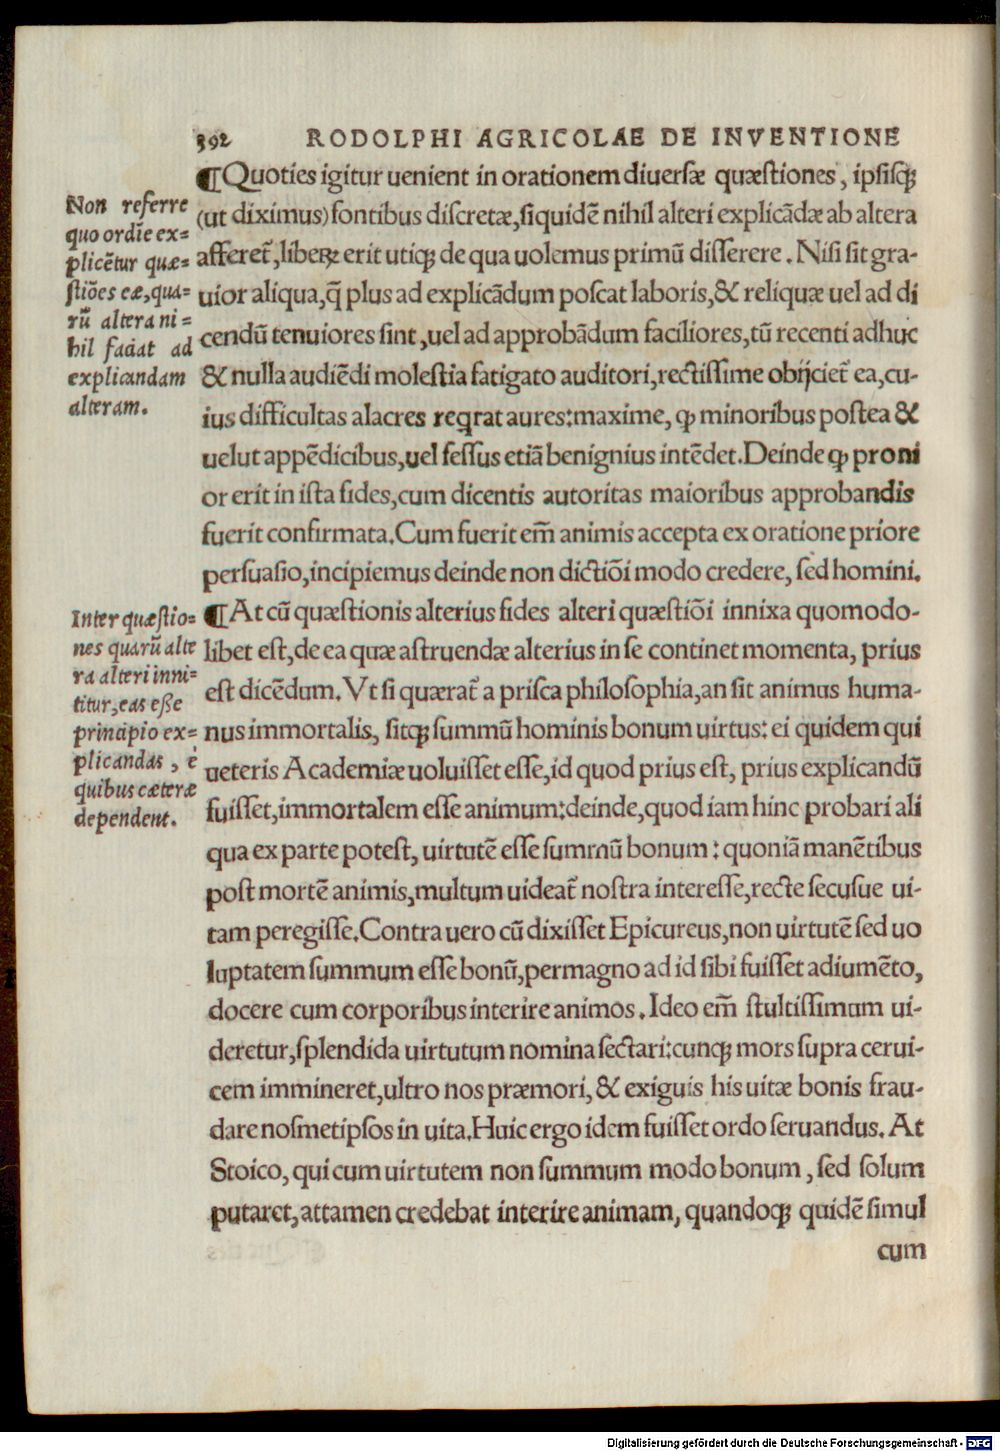 392 RODOLPHI AGRICOLAE DE INVENTIONE
¶Quoties igitur uenient in orationem diuersæ quæstiones, ipsisq꞉
(ut diximus) fontibus discretæ, siquidē nihil alteri explicādæ ab altera
afferet᷑, liberꝝ erit utiqꝫ de qua uolemus primū disserere. Nisi sit gra-
uior aliqua, q̄ plus ad explicādum poscat laboris, & reliquæ uel ad di
cendū tenuiores sint, uel ad approbādum faciliores, tū recenti adhuc
& nulla audiēdi molestia fatigato auditori, rectissime obijciet᷑ ea, cu-
ius difficultas alacres reqrat aures: maxime, ꝙ minoribus postea &
uelut appēdicibus, uel fessus etiā benignius intēdet. Deinde ꝙ proni
or erit in ista fides, cum dicentis autoritas maioribus approbandis
fuerit confirmata. Cum fuerit em̄ animis accepta ex oratione priore
persuasio, incipiemus deinde non dictiōi modo credere, sed homini.
¶At cū quæstionis alterius fides alteri quæstiōi innixa quomodo-
libet est, de ea quæ astruendæ alterius in se continet momenta, prius
est dicēdum. Vt si quærat᷑ a prisca philosophia, an sit animus huma-
nus immortalis, sitqꝫ summū hominis bonum uirtus: ei quidem qui
ueteris Academiæ uoluisset esse, id quod prius est, prius explicandū
fuisset, immortalem esse animum: deinde, quod iam hinc probari ali
qua ex parte potest, uirtutē esse summū bonum: quoniā manētibus
post mortē animis, multum uideat᷑ nostra interesse, recte secusue ui-
tam peregisse. Contra uero cū dixisset Epicureus, non uirtutē sed uo
luptatem summum esse bonū, permagno ad id sibi fuisset adiumēto,
docere cum corporibus interire animos. Ideo em̄ stultissimum ui-
deretur, splendida uirtutum nomina sectari: cunqꝫ mors supra cerui-
cem immineret, ultro nos præmori, & exiguis his uitæ bonis frau-
dare nosmetipsos in uita. Huic ergo idem fuisset ordo seruandus. At
Stoico, qui cum uirtutem non summum modo bonum, sed solum
putaret, attamen credebat interire animam, quandoqꝫ quidē simul
cum
Non referre
quo ordīe ex=
plicētur quæ=
stiōes eæ, qua=
rū altera ni=
hil faciat ad
explicandam
alteram.
Inter quæstio=
nes quarū alte
ra alteri inni=
titur, eas esse
principio ex=
plicandas, è
quibus cæteræ
dependent.
Digitalisierung gefördert durch die Deutsche Forschungsgemeinschaft - DFG